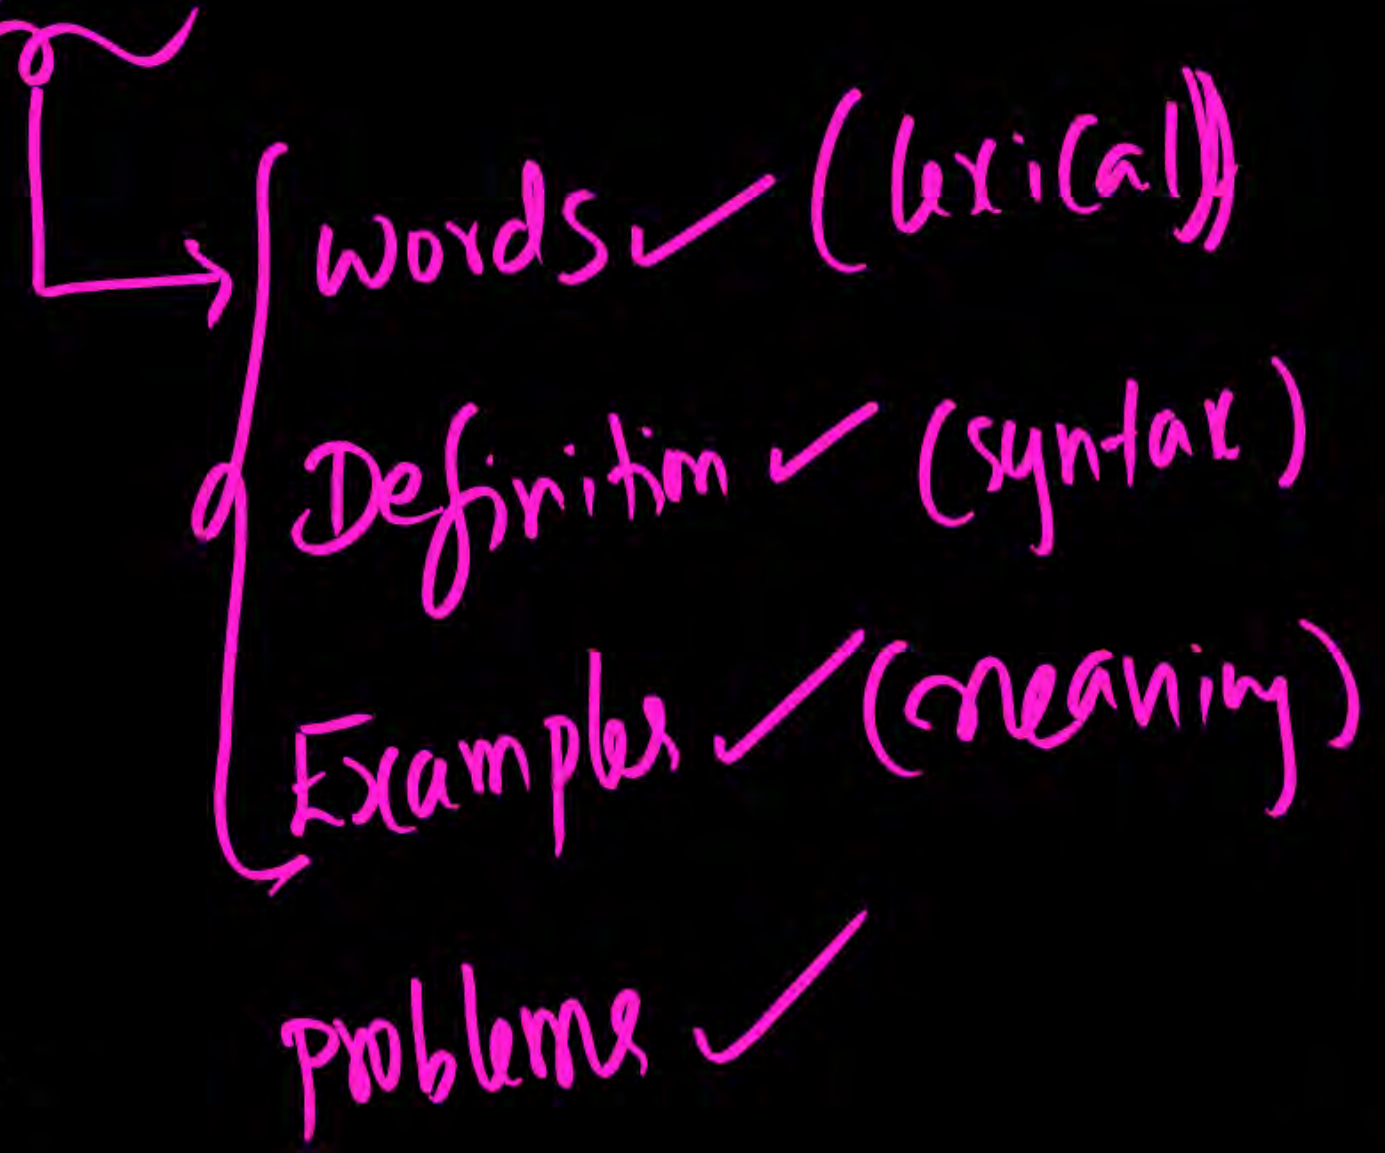 words ✓ (lexical)
Definition ✓ (syntax)
Examples ✓ (meaning)
problems ✓